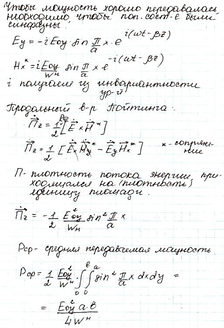 Чтобы мощность хорошо передавалась
необходимо чтобы поп. сост-е были
синфазны:
Ey = -i Eoy sin π/a x · e^-i(ωt-βz)
Hx* = i Eoy/Wн sin π/a x e^-i(ωt-βz)
i получаем из инвариантности
ур-й
Продольный в-р Пойтинга:
Пz = 1/2 [E × H*]
Пz = 1/2 [Ex Hy* - Ey Hx*] * - сопряже-
ние
П - плотность потока энергии, при-
ходящаяся на (плотность)
единицу площади.
Пz = -1/2 Eoy²/Wн sin² π/a x
Pср - средняя передаваемая мощность
Pср = 1/2 Eoy²/Wн ∫∫ sin² π/a x dx dy =
= Eoy² a b / 4Wн